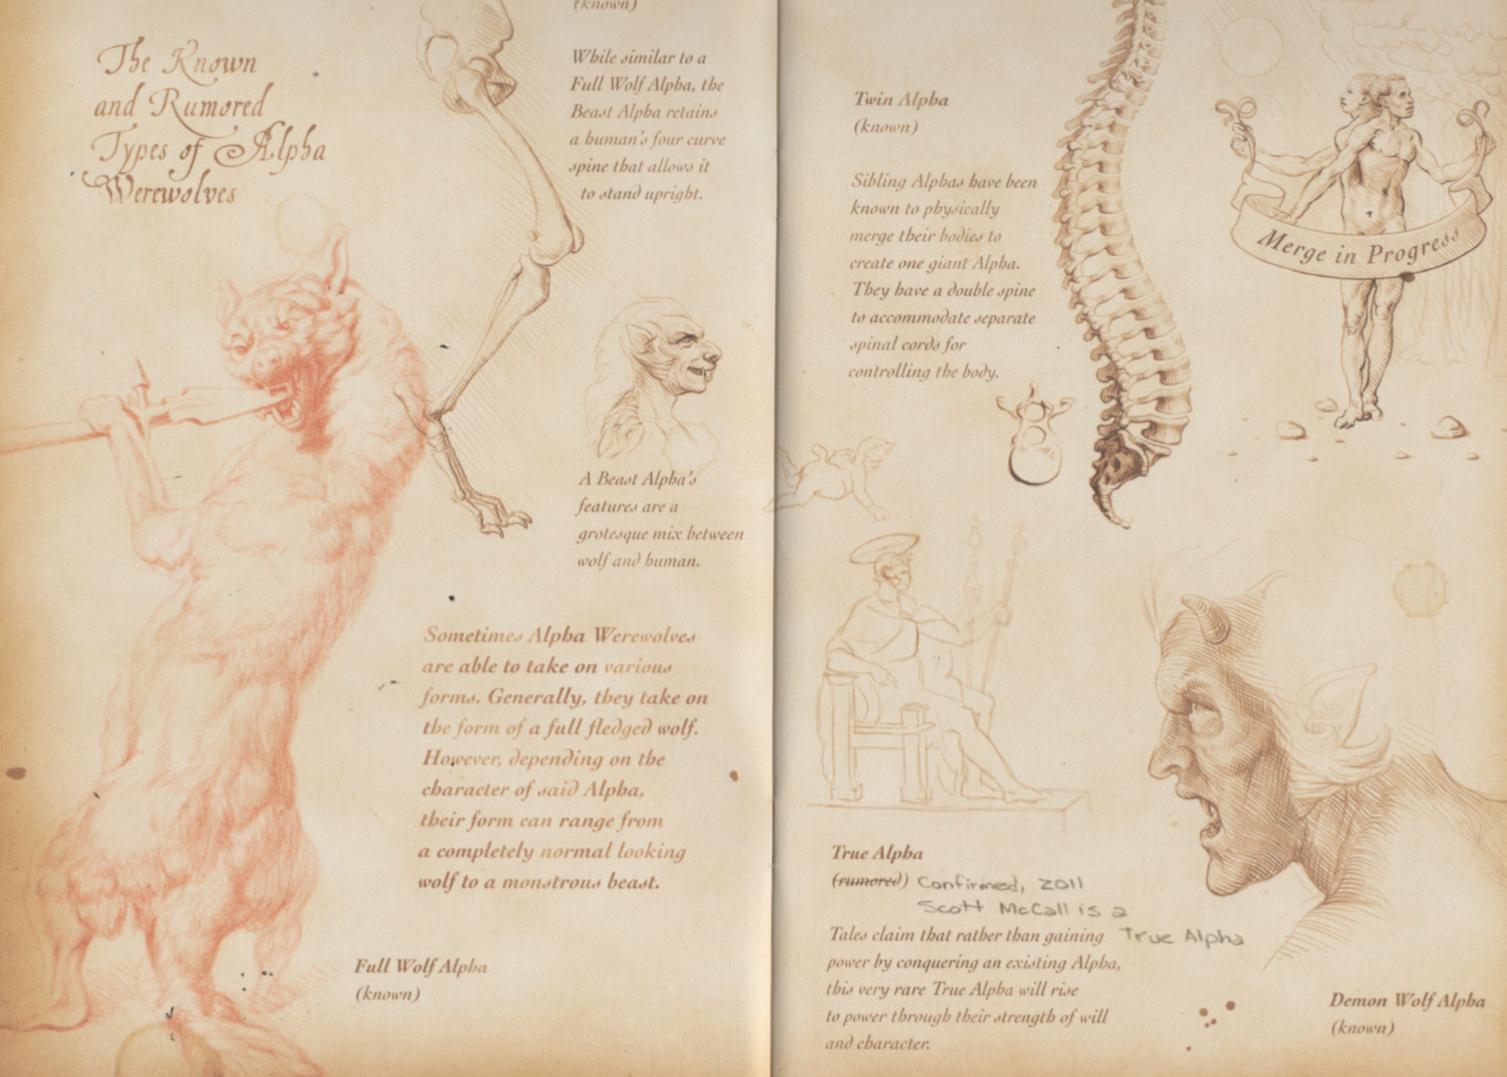 The Known
and Rumored
Types of Alpha
Werewolves
(known)
While similar to a
Full Wolf Alpha, the
Beast Alpha retains
a human's four curve
spine that allows it
to stand upright.
A Beast Alpha's
features are a
grotesque mix between
wolf and human.
Sometimes Alpha Werewolves
are able to take on various
forms. Generally, they take on
the form of a full fledged wolf.
However, depending on the
character of said Alpha,
their form can range from
a completely normal looking
wolf to a monstrous beast.
Full Wolf Alpha
(known)
Twin Alpha
(known)
Sibling Alphas have been
known to physically
merge their bodies to
create one giant Alpha.
They have a double spine
to accommodate separate
spinal cords for
controlling the body.
Merge in Progress
True Alpha
(rumored) Confirmed, 2011
Scott McCall is a
True Alpha
Tales claim that rather than gaining
power by conquering an existing Alpha,
this very rare True Alpha will rise
to power through their strength of will
and character.
Demon Wolf Alpha
(known)